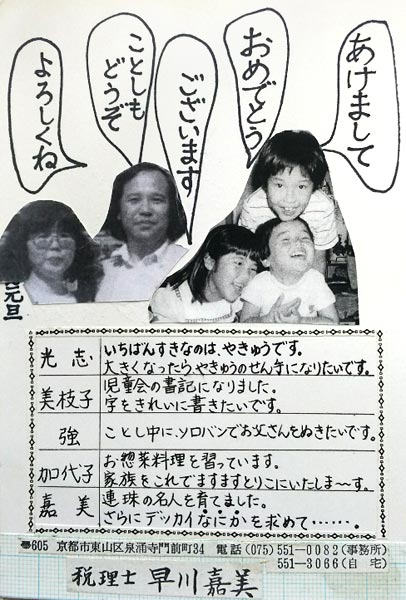 あけまして
おめでとう
ございます
ことしも
どうぞ
よろしくね
元旦
光志
いちばんすきなのは、やきゅうです。
大きくなったら、やきゅうのせん手になりたいです。
美枝子
児童会の書記になりました。
字をきれいに書きたいです。
強
ことし中に、ソロバンでお父さんをぬきたいです。
加代子
お惣菜料理を習っています。
家族をこれでますますとりこにいたしま〜す。
嘉美
連珠の名人を育てました。
さらにデッカイなにかを求めて……。
〒605 京都市東山区泉涌寺門前町34 電話(075)551-0082(事務所)
551-3066(自宅)
税理士 早川嘉美